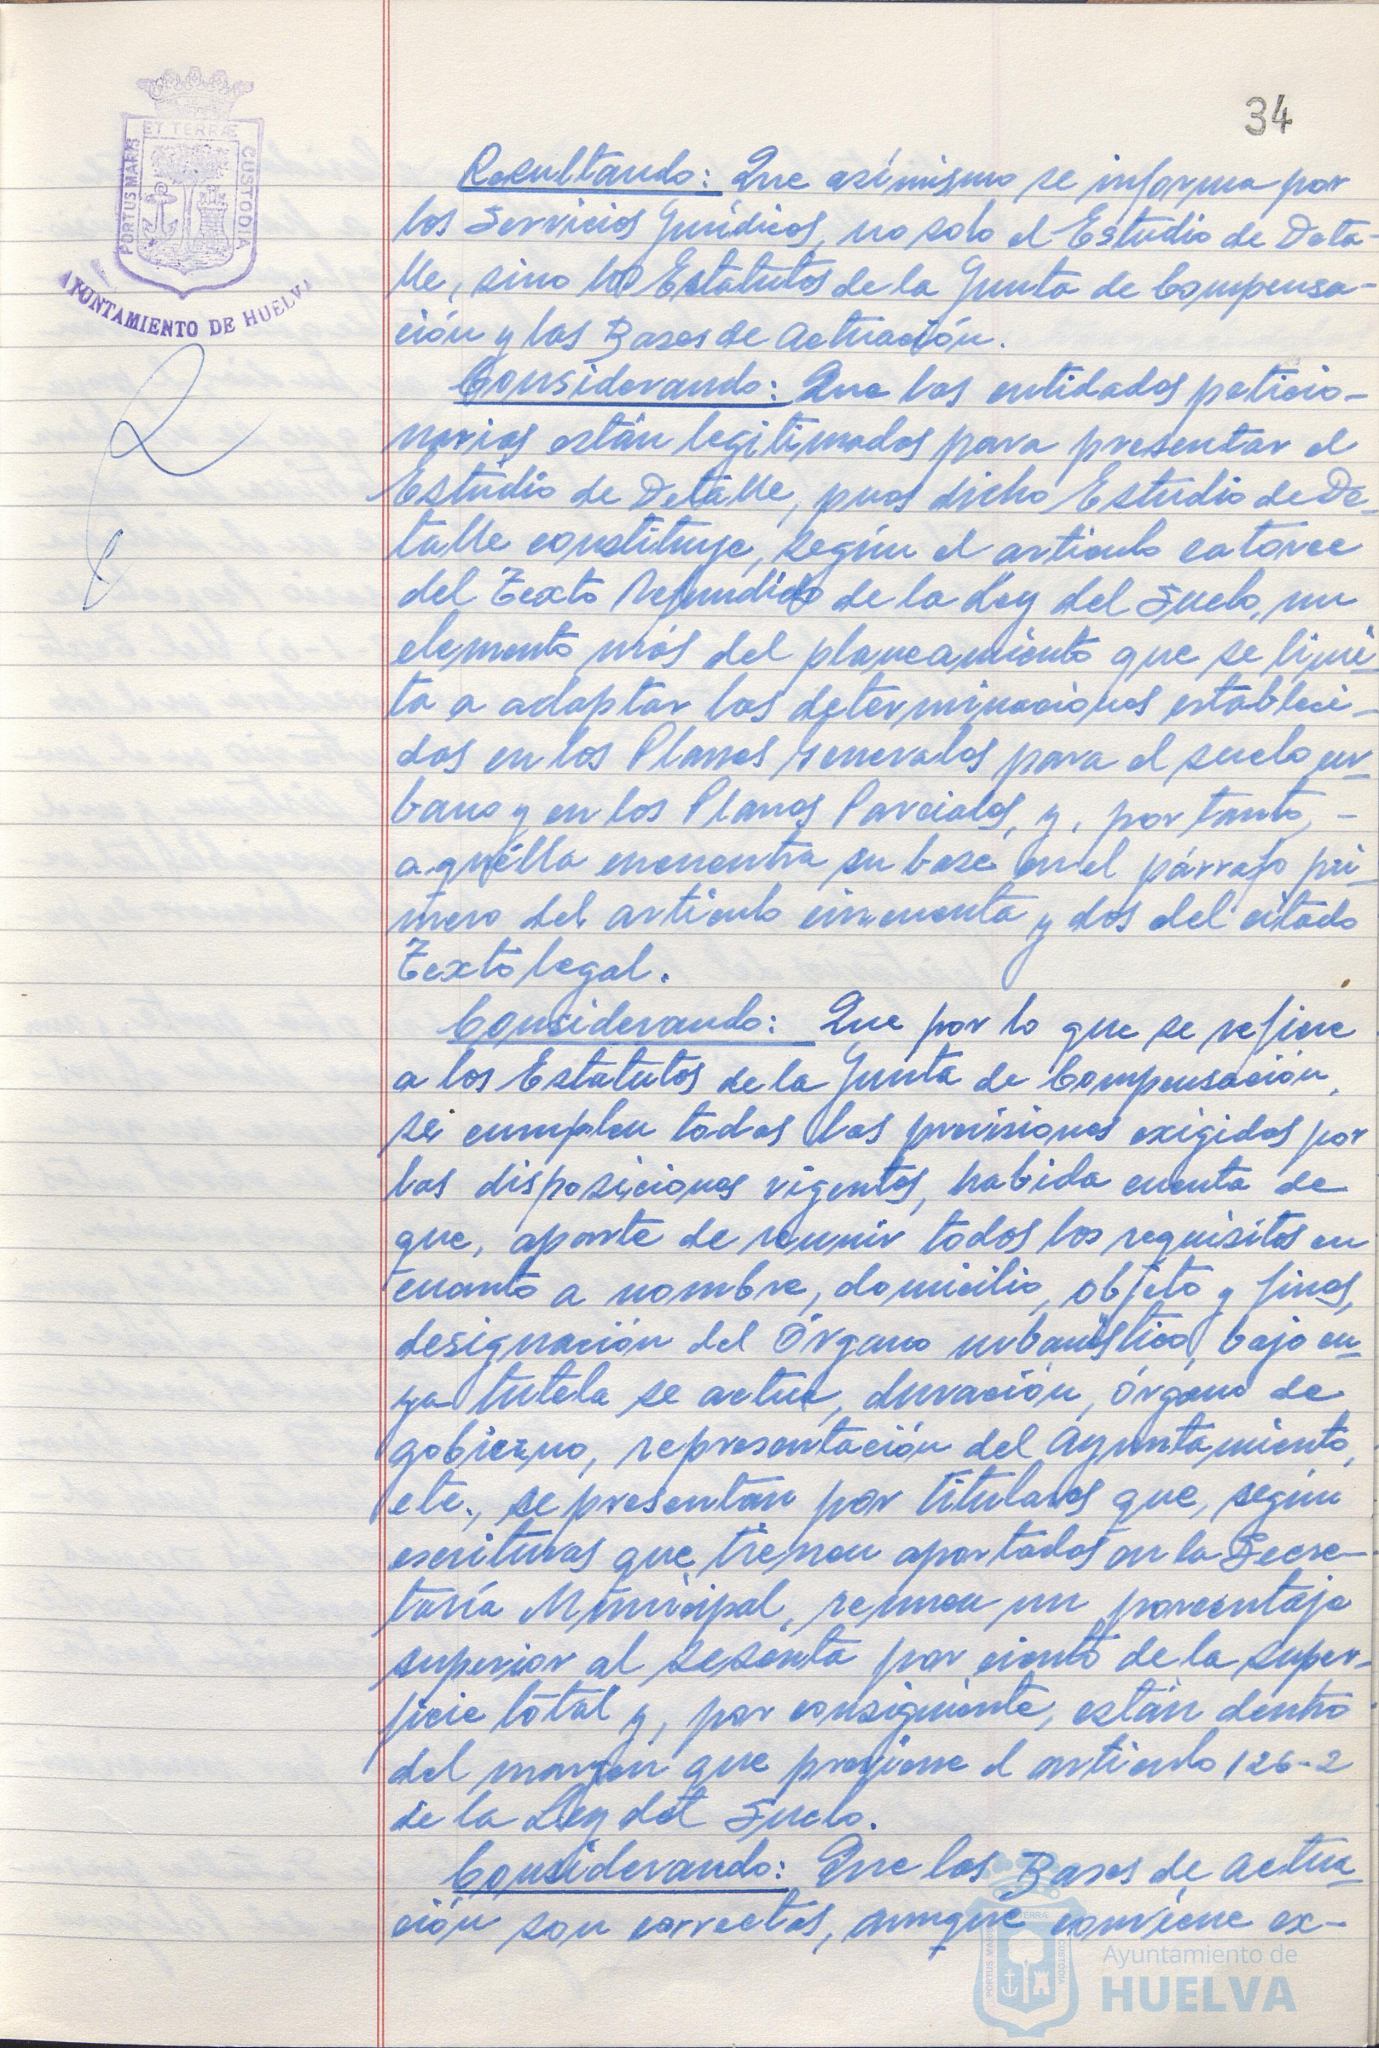 34
ET TERRÆ
PORTUS MARIS
CUSTODIA
AYUNTAMIENTO DE HUELVA
Resultando: Que asímismo se informa por
los Servicios Jurídicos, no solo el Estudio de Deta-
lle, sino los Estatutos de la Junta de Compensa-
ción y las Bases de Actuación.
Considerando: Que las entidades peticio-
narias están legitimadas para presentar el
Estudio de Detalle, pues dicho Estudio de De-
talle constituye, según el artículo catorce
del Texto Refundido de la Ley del Suelo, un
elemento más del planeamiento que se limi-
ta a adaptar las determinaciones estableci-
das en los Planes Generales para el suelo ur-
bano y en los Planes Parciales, y, por tanto, -
aquélla encuentra su base en el párrafo pri-
mero del artículo cincuenta y dos del citado
Texto legal.
Considerando: Que por lo que se refiere
a los Estatutos de la Junta de Compensación,
se cumplen todas las previsiones exigidas por
las disposiciones vigentes, habida cuenta de
que, aparte de reunir todos los requisitos en
cuanto a nombre, domicilio, objeto y fines,
designación del Órgano urbanístico, bajo cu-
ya tutela se actúe, duración, órgano de
gobierno, representación del Ayuntamiento,
etc., se presentan por titulares que, según
escrituras que tienen aportadas en la Secre-
taría Municipal, reunen un porcentaje
superior al sesenta por ciento de la super-
ficie total y, por consiguiente, están dentro
del margen que previene el artículo 126-2
de la Ley del Suelo.
Considerando: Que las Bases de Actua-
ción son correctas, aunque conviene ex-
Ayuntamiento de
HUELVA